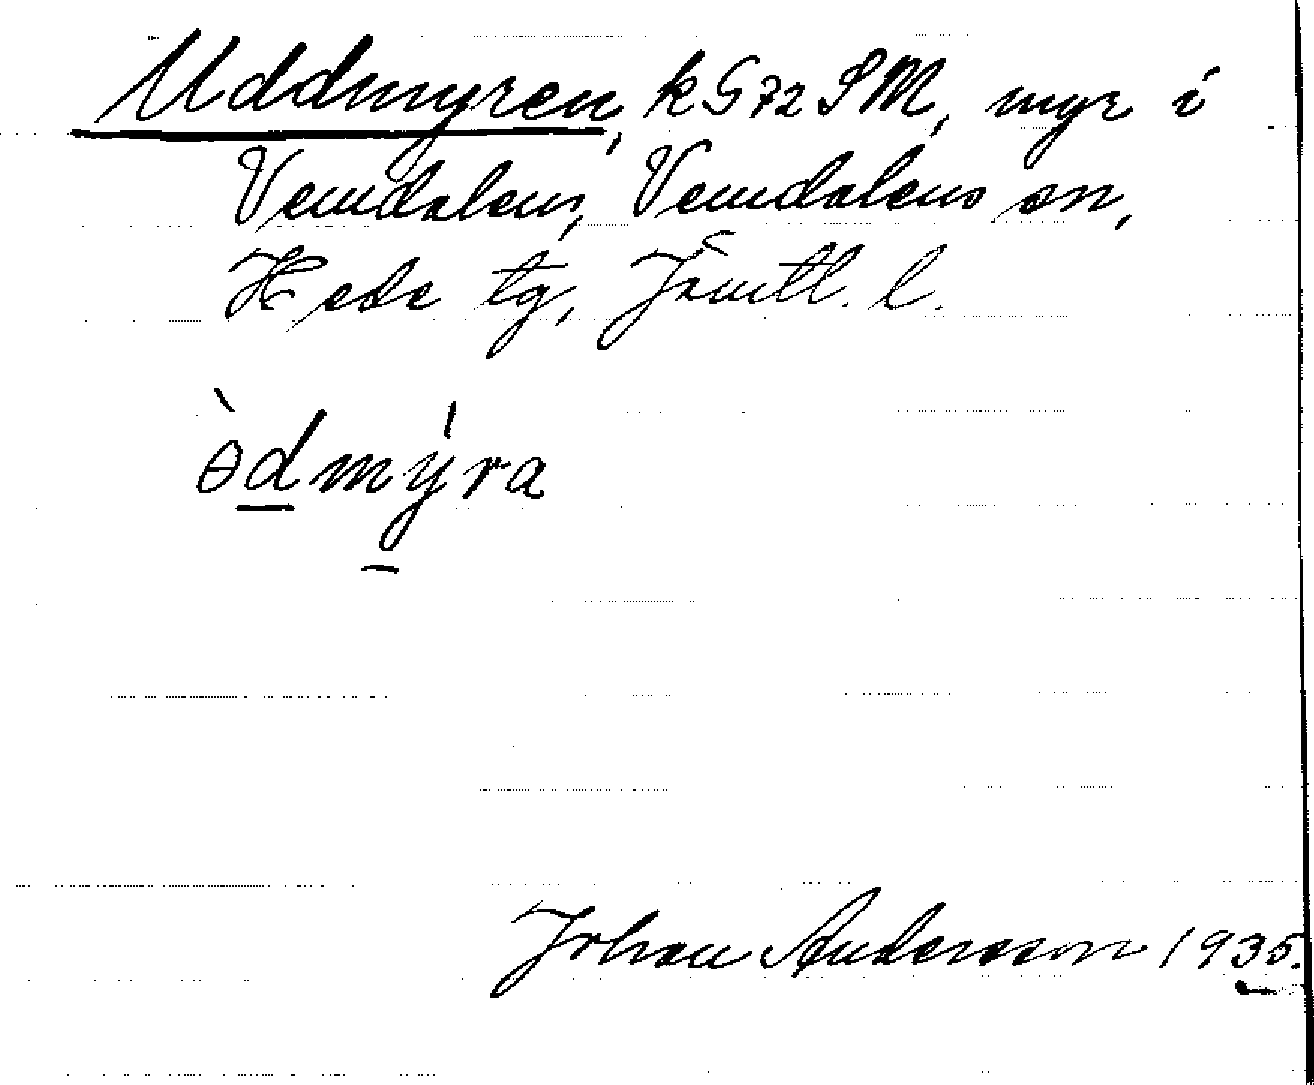 Uddmyren, k G72 SM, myr i
Vemdalen, Vemdalens sn,
Hede tg, Jämtl. l.
ɵ̀dmýra
Johan Andersson 1935.